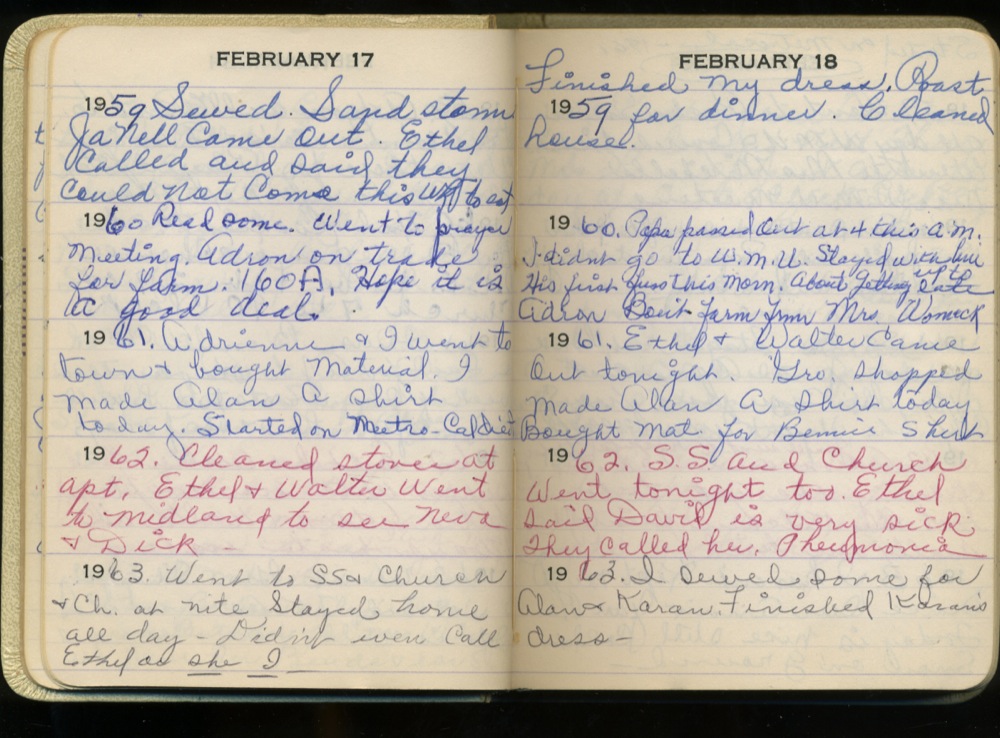 FEBRUARY 17
1959 Sewed. Sand storm
JaNell Came out. Ethel
Called and said they
could not Come this
1960 Read some. Went to prayer
Meeting. Adron on trade
for farm. 160 A. Hope it is
a good deal.
1961. Adrienne & I went to
town & bought Material. I
made Alan A Shirt
today. Started on Metro-Cal Diet
1962. Cleaned stoves at
apt. Ethel & Walter Went
to midland to see Neva
& Dick -
1963. Went to SS & Church
& Ch. at nite Stayed home
all day - Didn't even Call
Ethel as she I -
FEBRUARY 18
Finished my dress. Roast
1959 for dinner. Cleaned
house.
1960. Papa passed Out at 4 this a.m.
I didnt go to W.M.U. Stayed with him
His first this Morn. About Getting up to
Adron Boit farm frm Mrs. Womack
1961. Ethel & Walter Came
Out tonight. Gro. shopped
made Alan A Shirt today
Bought Mat. for Bennie Shirt
1962. S.S and Church
Went tonight too. Ethel
said David is very sick.
They called her. Pheumonia
1963. I sewed some for
Alan & Karan. Finished Karan's
dress -